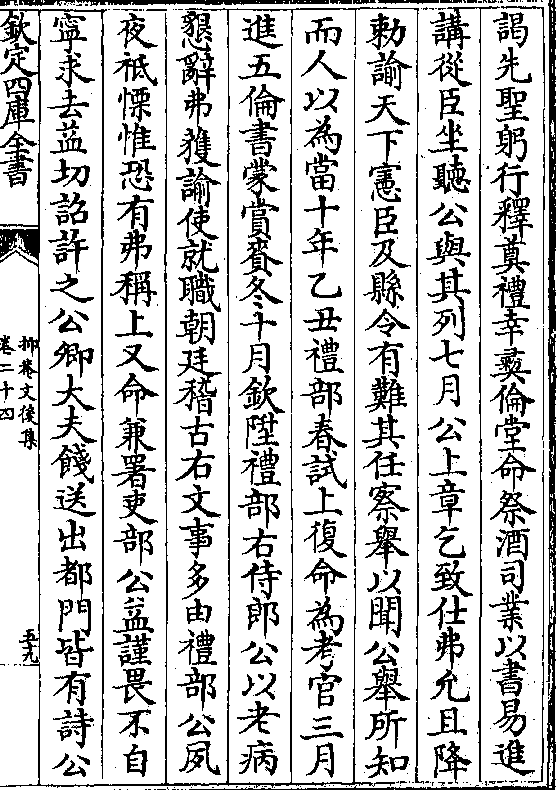 謁先聖躬行釋奠禮幸彝倫堂命祭酒司業以書易進
講從臣坐聽公與其列七月公上章乞致仕弗允且降
勅諭天下憲臣及縣令有難其任察舉以聞公舉所知
而人以為當十年乙丑禮部春試上復命為考官三月
進五倫書蒙賞賚冬十月欽陞禮部右侍郎公以老病
懇辭弗獲諭使就職朝廷稽古右文事多由禮部公夙
夜祗慄惟恐有弗稱上又命兼署吏部公益謹畏不自
寧求去益切詔許之公卿大夫餞送出都門皆有詩公
欽定四庫全書
抑菴文後集
卷二十四
五九